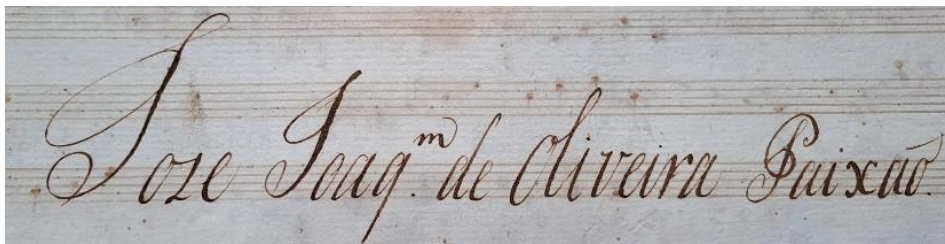 Joze Joaq.^m de Oliveira Paixaõ.